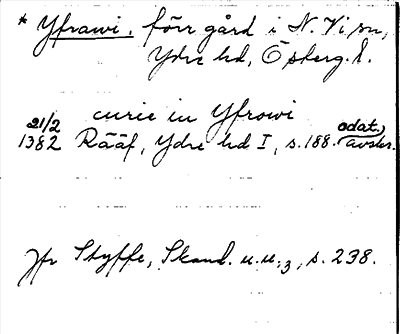 * Yfrawi, förr gård i N. Vi sn,
Ydre hd, Ö.sberg. l.
curie in Yfrowi
21/2
1382 Rääf, Ydre hd I, s. 188. odat. avskr.
Jfr Styffe, Skand. u. u. 3, s. 238.